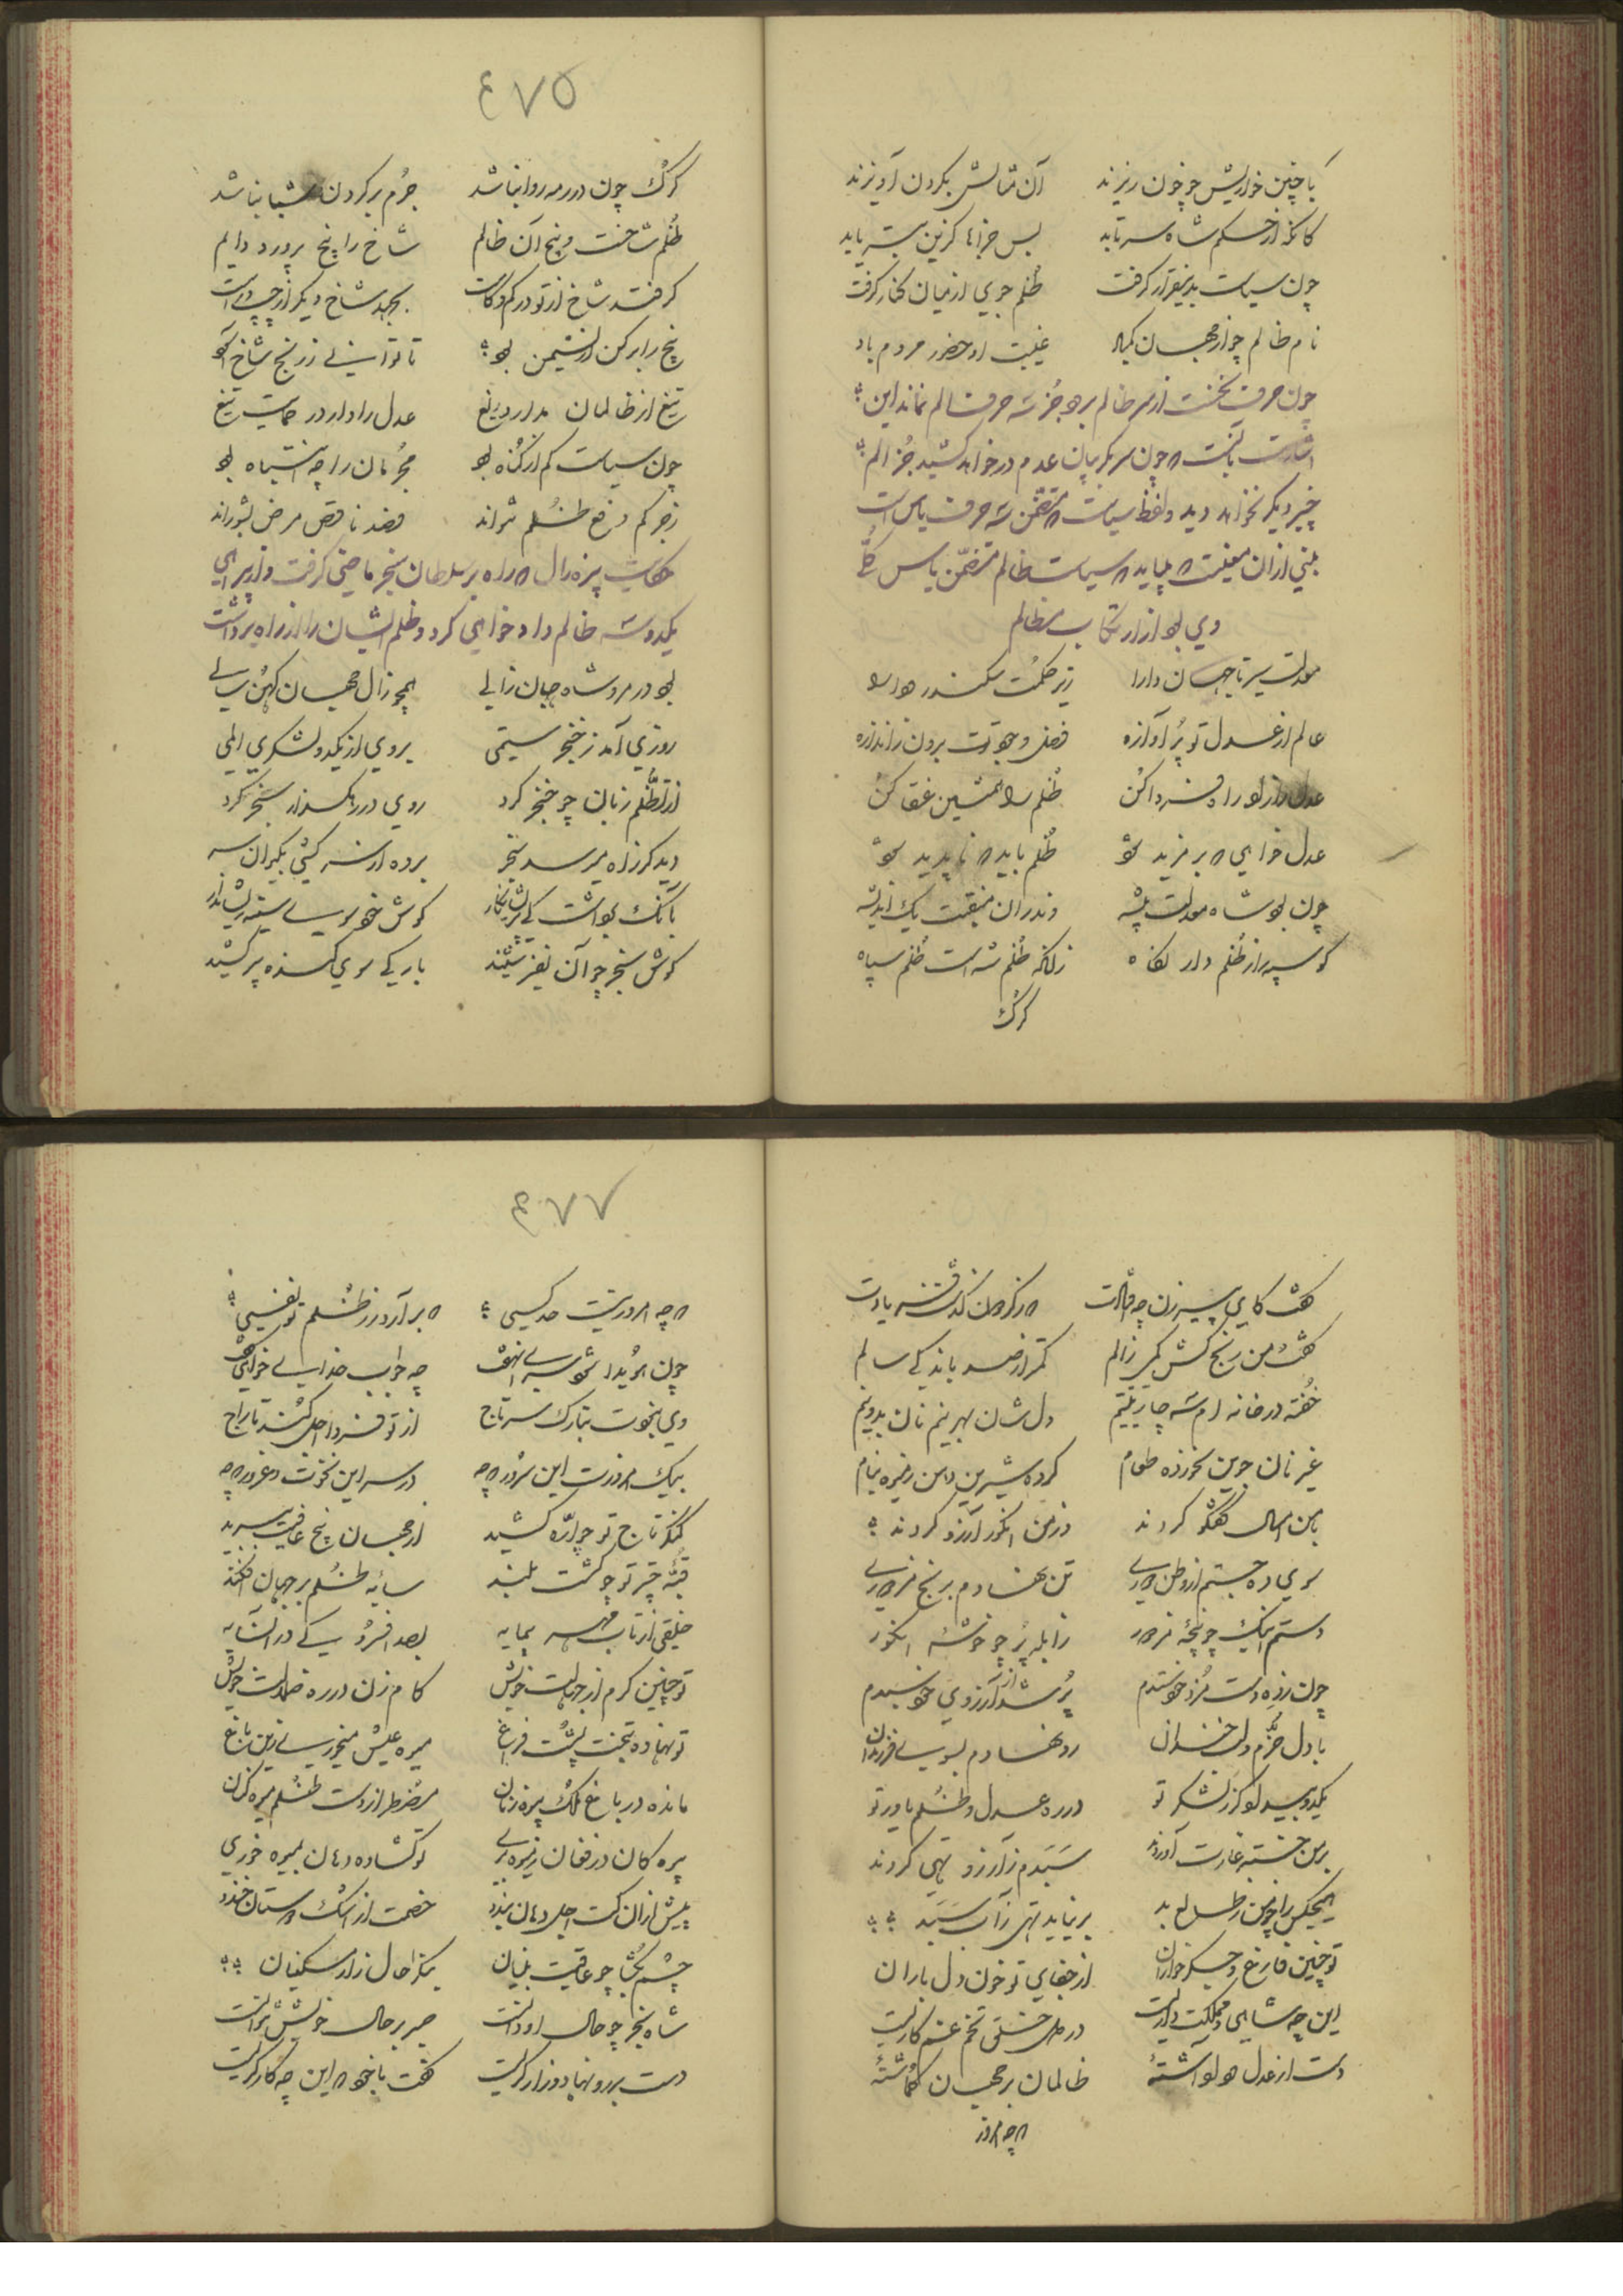 با چنین خواریش چو خون ریزند آن مثالش بگردن آویزند
کانکه از حکم شاه سر تابد بس جزاها کزین بتر یابد
چون سیاست بدین قرار گرفت ظلم جویی از میان کنار گرفت
نام ظالم چو از جهان غیبت او حضور مردم باد
چون حرف نخست از سر ظالم برود جز سه حرف الم نماند این
اشارت بآنست که چون سر بگریبان عدم در خواهد کشید جز الم
چیز دیگر نخواهد دید و لفظ سیاست که متضمن سه حرف یاس است
مبنی از آن معنیست که میباید که سیاست ظالم متضمن یاس کلی
وی بود از ارتکاب مظالم
معدلت سیرتا جهان دارا زیر حکمت سکندر و دارا
عالم از عدل تو پر آوازه فضل وجودت برون ز اندازه
عدل را از لوا فروا کن ظلم را همنشین عنقا کن
عدل خواهی که بر مزید شود ظلم باید که ناپدید شود
چون بود شاه معدلت پیشه و ندران منقبت یک اندیشه
کو سپه را ز ظلم دار نگاه زانکه ظلم شه است ظلم سپاه
گرگ
٤٧٥
گرگ چون در رمه روا نباشد جرم بر گردن شبان باشد
ظلم شاخست و بیخ آن ظالم شاخ را بیخ پرورد دایم
گر فتد شاخ از تو در کم و کاست بجهد شاخ دیگر از چپ و راست
بیخ را بر کن از نشیمن تا توانی ز رنج شاخ
تیغ از ظالمان مدار دریغ عدل را دار در حمایت تیغ
چون سیاست کم از گناه بود مجرمان را چه انتباه بود
زجر کم دفع ظلم نتواند فصد ناقص مرض بشوراند
حکایت پیره زال که راه بر سلطان سنجر ماضی گرفت و از برای
یکدو سه ظالم دادخواهی کرد و ظلم ایشان را از راه برداشت
بود در مرو شاه جهان زالی همچو زال جهان کهن سالی
روزی آمد ز خنجر ستمی بر وی از یکدو لشکری المی
از تظلم زبان چو خنجر کرد روی در رهگذار سنجر کرد
دید کز راه میرسد سنجر برده از سرکشی بکیوان سر
بانک برداشت کای پریشان کار گوش خود سوی سینه ریشان دار
گوش سنجر چو آن نفیر شنید بارگی سوی گنده پیر کشید
گفت کای پیرزن چه افتادت که ز گردون گذشت فریادت
گفت من رنج کش یکی زالم کمتر از صد باندکی سالم
خفته در خانه ام سه چار یتیم دلشان بهر نیم نان بدو نیم
غیر نان جوین نخورده طعام کرده شیرین دهن ز میوه بنام
با من امسال گفتگو کردند وز من انگور آرزو کردند
سوی ده جستم از وطن دوری تن نهادم برنج مزدوری
دستم اینک چو پنجه مزدور ز آبله پر چو خوشه انگور
چون ز ده دست مزد خود ستدم پر شد از آرزوی خود سبدم
با دل خرم و لب خندان رو نهادم بسوی فرزندان
یکدو بیدادگر ز لشکر تو در ره عدل و ظلم یاور تو
بر من خسته غارت آوردند سبدم ز آرزو تهی کردند
هیچکس را چو من ز طالع بد بر نیاید تهی ز آب سبد
تو چنین فارغ و جگرخواران از جفای تو خون دل باران
این چه شاهی و مملکت داریست در دل خلق تخم غم کاریست
دست از عدل و داد داشته ظالمان بر جهان گماشته
که چه امروز
٤٧٧
که چه امروز نیست حد کسی که برآرد ز ظلم تو نفسی
چون بود فردا شود سرای نهفت چه جواب خدای خواهی گفت
وی بنخوت بتارک سر تاج از تو فردا اجل کند تاراج
نیک امروزت این سرور که چه در سر این نخوت و غرور که چه
کنگر تاج تو چو اره کشید از جهان بیخ عافیت ببرید
قبه چتر تو چو گشت بلند سایه ظلم بر جهان افکند
خلقی از تاب مهر بی سایه بصد افسردگی در آن سایه
تو چنین گرم از جهالت خویش گام زن در ره ضلالت خویش
تو نهاده بتخت پشت فراغ میوه عیش میخوری زین باغ
مانده در باغ ملک بیوه زنان مضطر از دست ظلم میوه کنان
بیوه گان در فغان ز میوه بری تو گشاده دهان بمیوه خوری
پیش ازان کت اجل دهان بندد خصمت از اشک دوستان خندد
چشم بگشا چو عاقبت بینان بنگر احوال زار مسکینان
شاه سنجر چو حال او دانست صبر بر حال خویش نتوانست
دست بر رو نهاد و زار گریست گفت با خود که این چه کار گریست